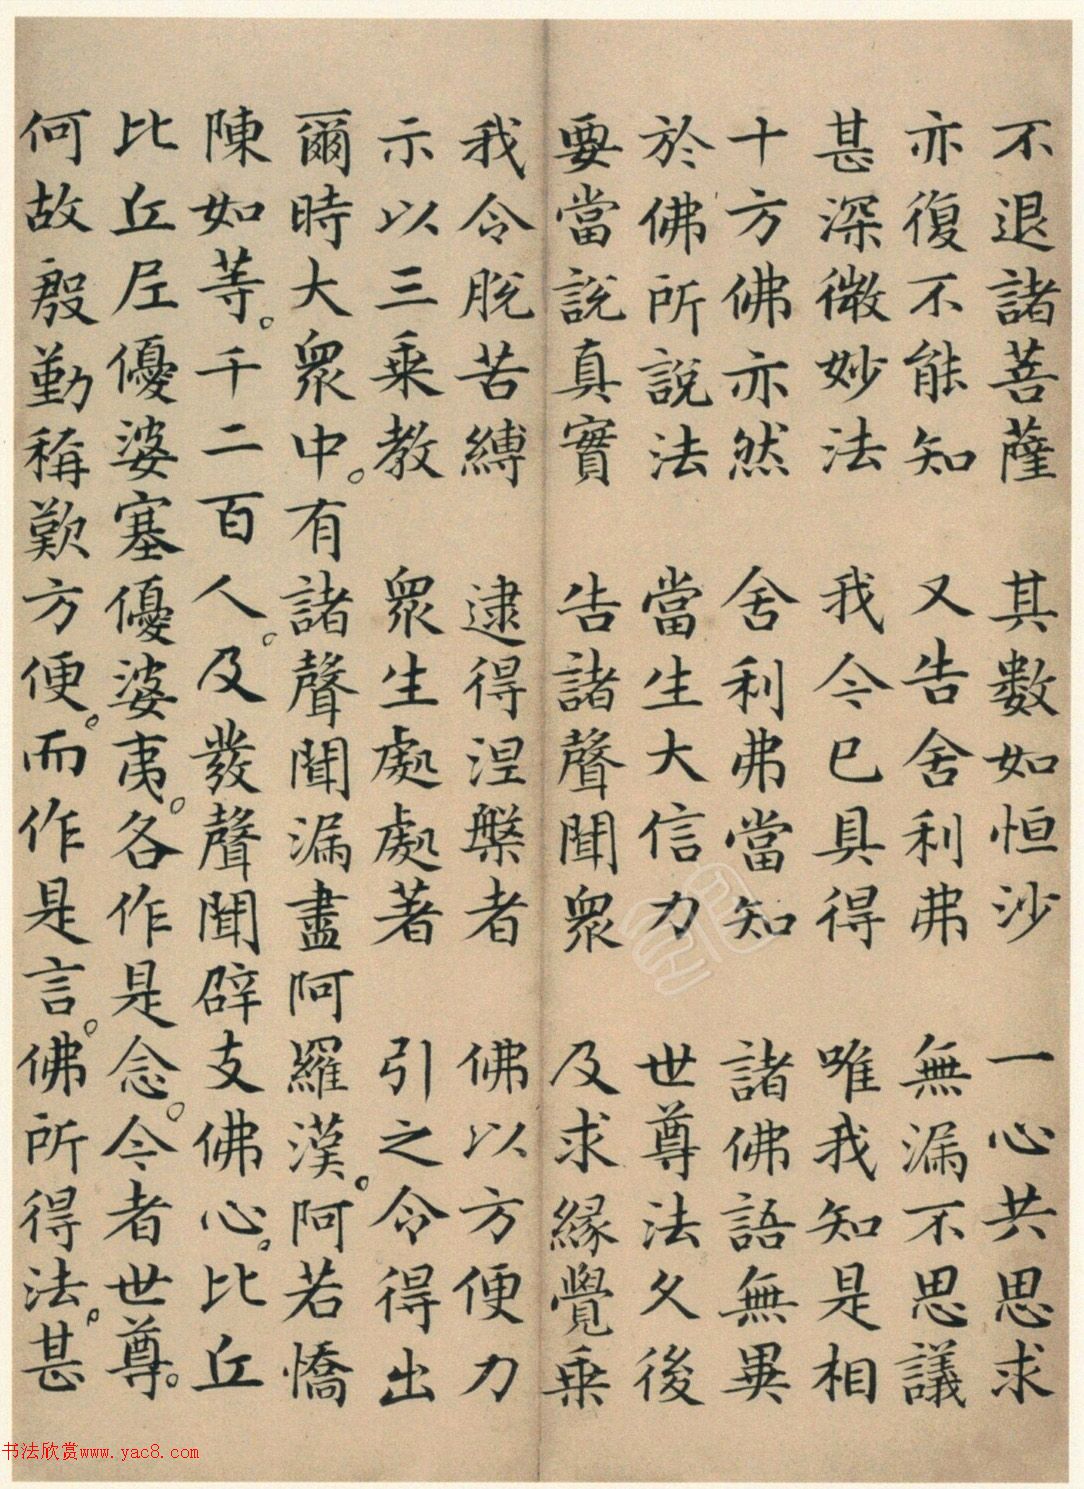 不退諸菩薩 其數如恒沙 一心共思求
亦復不能知 又告舍利弗 無漏不思議
甚深微妙法 我今已具得 唯我知是相
十方佛亦然 舍利弗當知 諸佛語無異
於佛所說法 當生大信力 世尊法久後
要當說真實 告諸聲聞眾 及求緣覺乘
我令脫苦縛 逮得涅槃者 佛以方便力
示以三乘教 眾生處處著 引之令得出
爾時大眾中。有諸聲聞漏盡阿羅漢。阿若憍
陳如等。千二百人。及發聲聞辟支佛心。比丘
比丘尼優婆塞優婆夷。各作是念。今者世尊。
何故殷勤稱歎方便。而作是言。佛所得法。甚
书法欣赏www.yac8.com